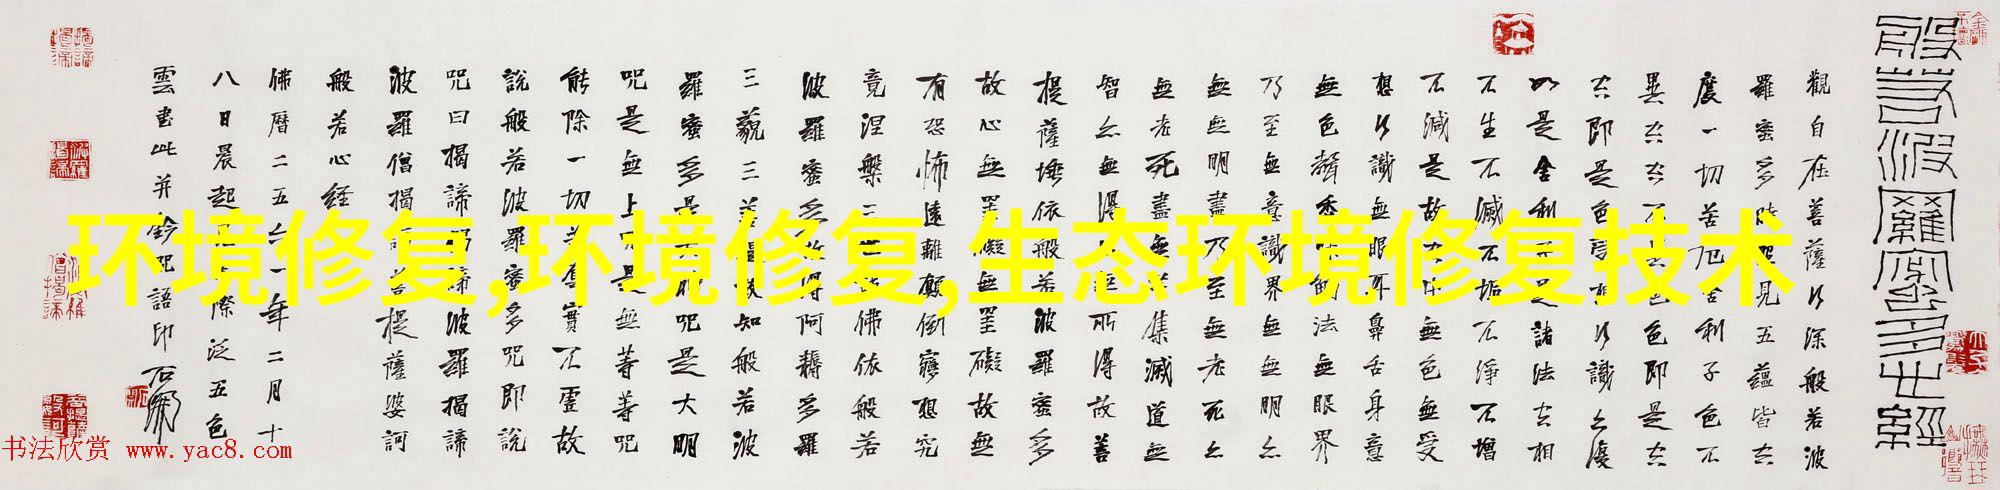 環境修复,环境修复,生态环境修复技术
般若波羅蜜多心經
觀自在菩薩行深般若波
羅蜜多時照見五蘊皆空
度一切苦厄舍利子色不
異空空不異色色即是空
空即是色受想行識亦復
如是舍利子是諸法空相
不生不滅不垢不淨不增
不減是故空中無色無受
想行識無眼耳鼻舌身意
無色聲香味觸法無眼界
乃至無意識界無無明亦
無無明盡乃至無老死亦
無老死盡無苦集滅道無
智亦無得以無所得故菩
提薩埵依般若波羅蜜多
故心無罣礙無罣礙故無
有恐怖遠離顛倒夢想究
竟涅槃三世諸佛依般若
波羅蜜多故得阿耨多羅
三藐三菩提故知般若波
羅蜜多是大神咒是大明
咒是無上咒是無等等咒
能除一切苦真實不虛故
說般若波羅蜜多咒即說
咒曰揭諦揭諦波羅揭諦
波羅僧揭諦菩提薩婆訶
般若心経
佛曆二五六一年二月十
八日晨起際泛五色
雲書此并鈐咒語印
书法欣赏 www.yac8.com